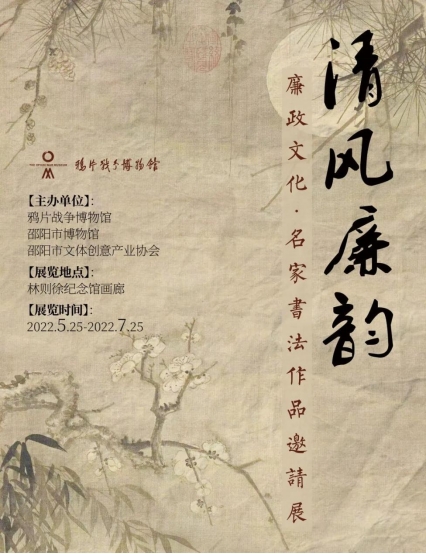 清风廉韵
廉政文化·名家書法作品邀請展
鸦片战争博物馆
【主办单位】:
鸦片战争博物馆
邵阳市博物馆
邵阳市文体创意产业协会
【展览地点】:
林则徐纪念馆画廊
【展览时间】:
2022.5.25-2022.7.25